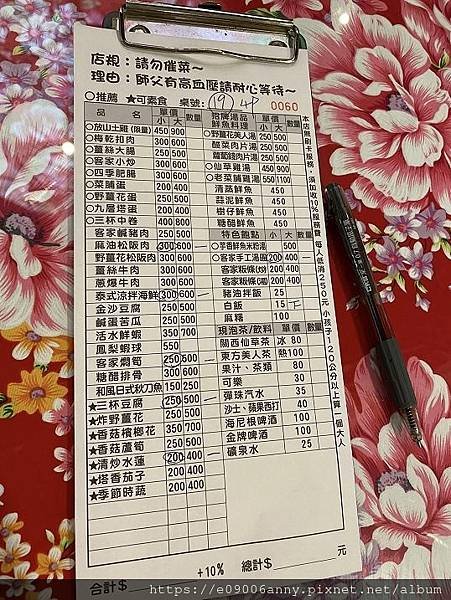 店規：請勿催菜～
理由：師父有高血壓請耐心等待～
○推薦 ★可素食 桌號：
0060
品名 單價 小 大 數量
○放山土雞(限量) 450 900
○梅乾扣肉 300 600
○薑絲大腸 300 600
○客家小炒 300 600
○四季肥腸 300 600
○菜脯蛋 200 400
○野薑花蛋 250 500
○九層塔蛋 200 400
○三杯中卷 400 800
客家鹹豬肉 250 500
麻油松阪肉 300 600
野薑花松阪肉 300 600
薑絲牛肉 300 600
蔥爆牛肉 300 600
泰式涼拌海鮮 300 600
金沙豆腐 250 500
鹹蛋苦瓜 250 500
活水鮮蝦 350 700
鳳梨蝦球 550
客家燜筍 250 500
糖醋排骨 300 600
和風日式秋刀魚 150 250
★三杯豆腐 250 500
★炸野薑花 250 500
★香菇檳榔花 350 700
★香菇蘆筍 250 500
★清炒水蓮 200 400
★塔香茄子 200 400
★季節時蔬 200 400
招牌湯品 鮮魚料理 單價 小 大 數量
○野薑花美人湯 250 500
酸菜肉片湯 250 500
蘿蔔錢肉片湯 250 500
○仙草雞湯 450 900
○老菜脯雞湯 550 1100
清蒸鮮魚 450
蒜泥鮮魚 450
樹仔鮮魚 450
糖醋鮮魚 450
特色飽點 小 大 數量
○芋香鮮魚米粉湯 500
○客家手工湯圓 200 400
客家粄條(炒) 200 400
客家粄條(湯) 200 400
豬油拌飯 25
白飯 15
麻糬 100
現泡茶/飲料 單價 數量
關西仙草茶 冰 80
東方美人茶 熱100
果汁、茶類 80
可樂 30
彈珠汽水 35
沙士、蘋果西打 40
海尼根啤酒 100
金牌啤酒 100
礦泉水 25
本店無刷卡服務，須加收10%服務費 每人低消250元 小孩子120公分以上算一個大人
+10% 總計$ 元
合計$
https://e09006anny.pixnet.net/album